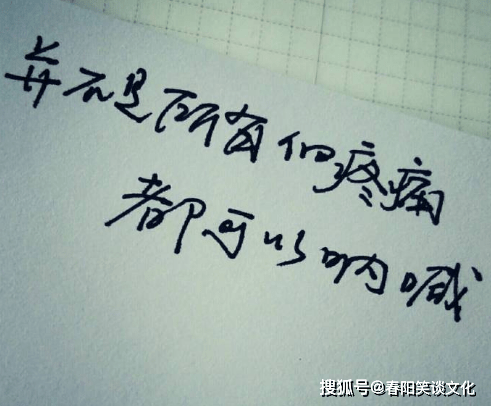 并不是所有的疼痛
都可以呐喊
搜狐号@春阳笑谈文化